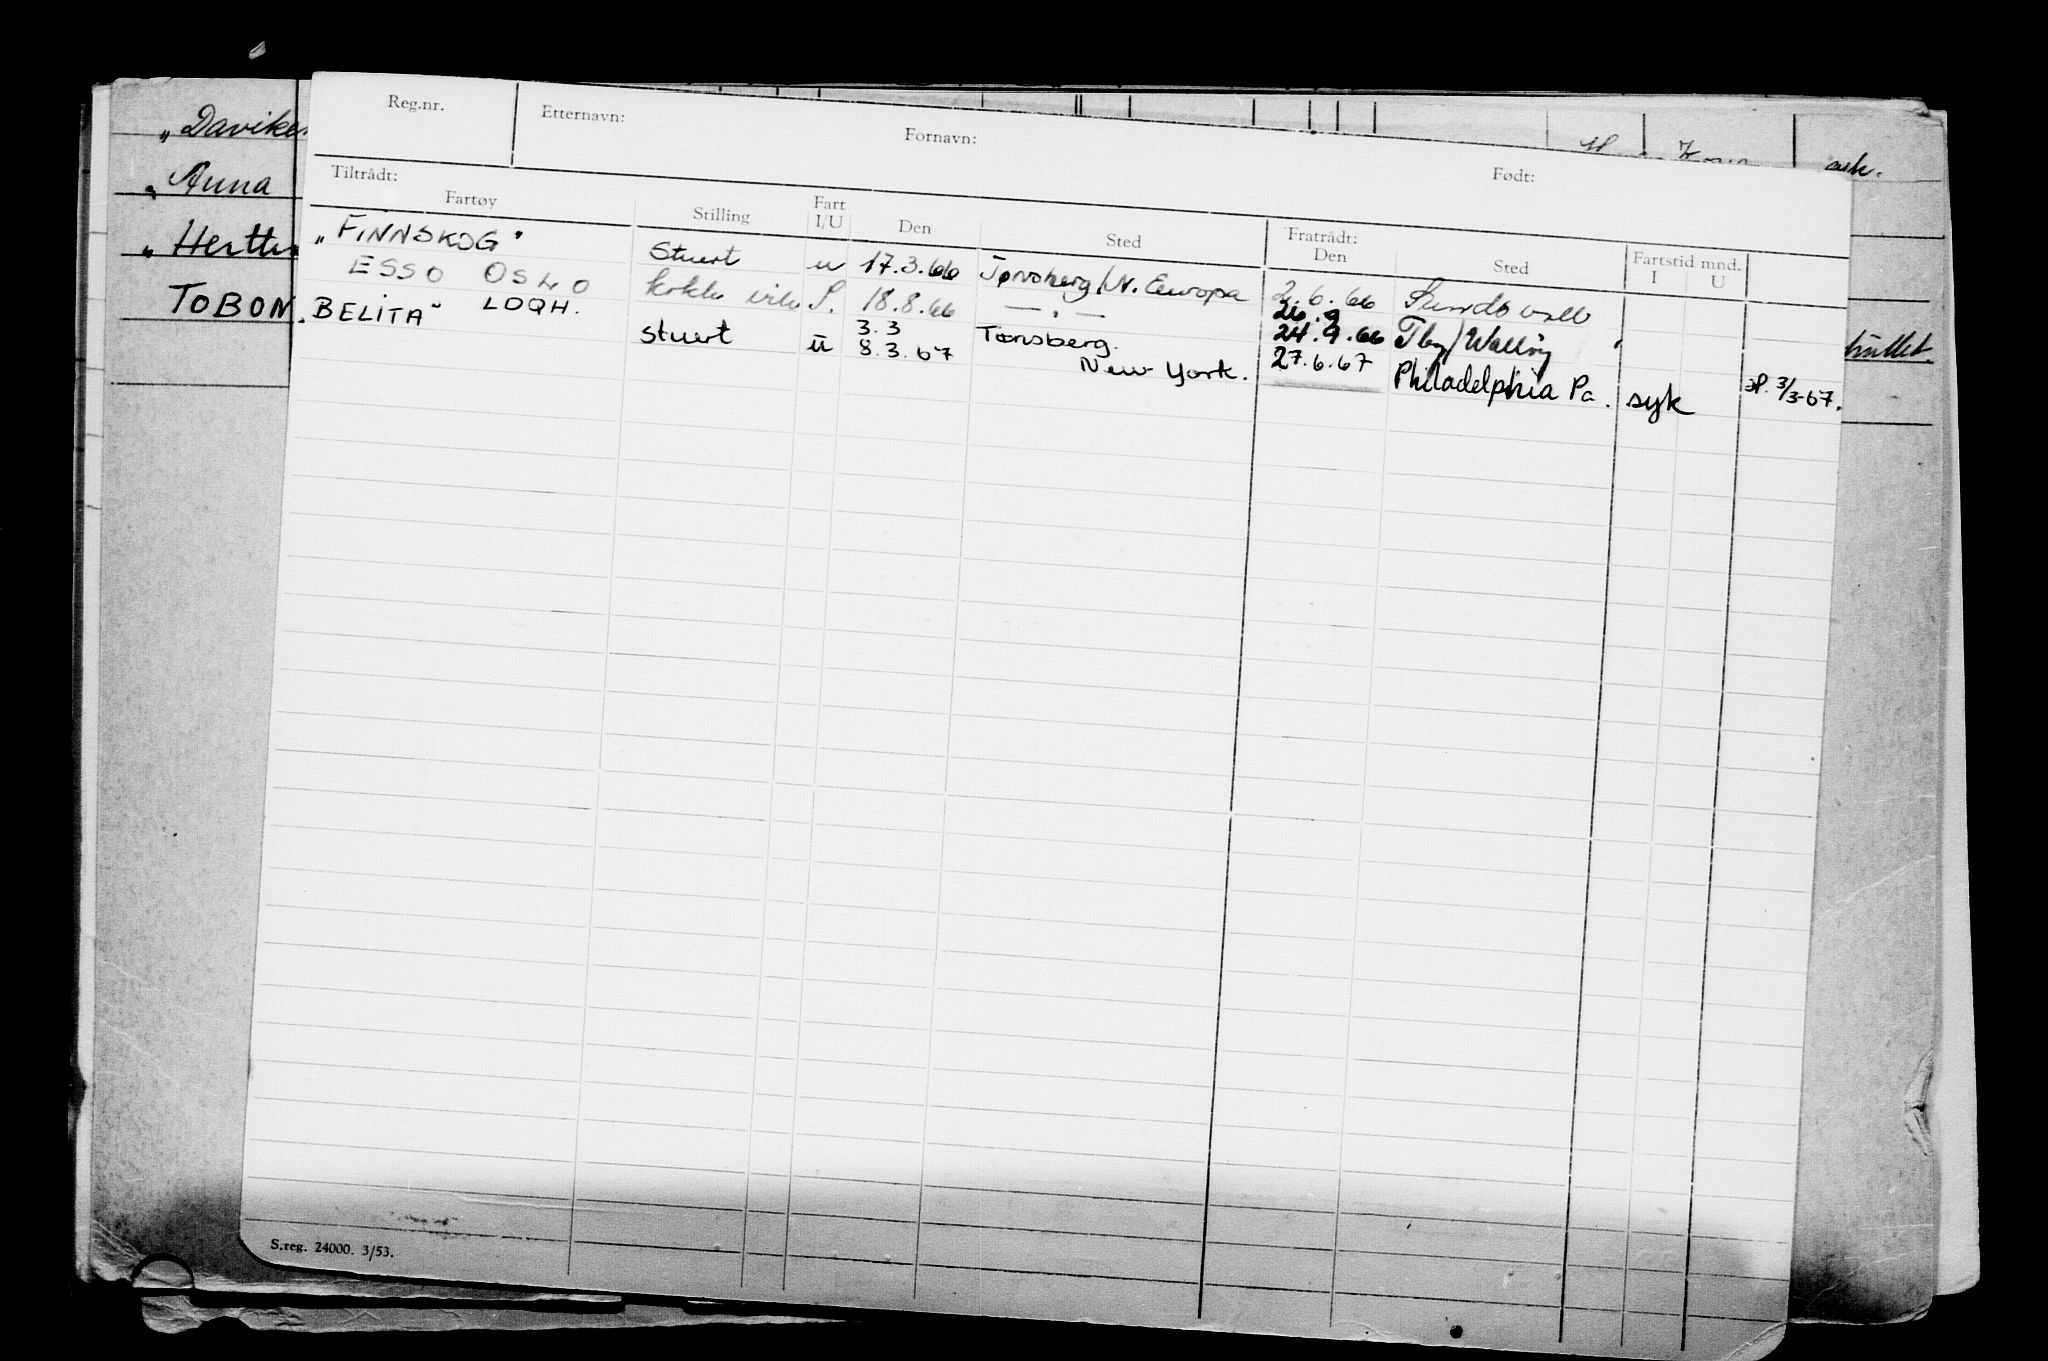 Reg.nr. Etternavn: Fornavn: Født:
Tiltrådt: Fratrådt:
Fartøy Stilling Fart I/U Den Sted Den Sted Fartstid mnd. I U
„FINNSKOG" Stuert u 17.3.66 Tønsberg/N. Europa 2.6.66 Sundsvall
ESSO OSLO S. 18.8.66 — " — 26.9
„BELITA" LDQH. Stuert u 3.3 Tønsberg. 24.9.66 Tbg/Valløy
8.3.67 New York. 27.6.67 Philadelphia Pa. syk 3/3-67.
„Davike
„Anna
„Hertha
TOBON
S.reg. 24000. 3/53.